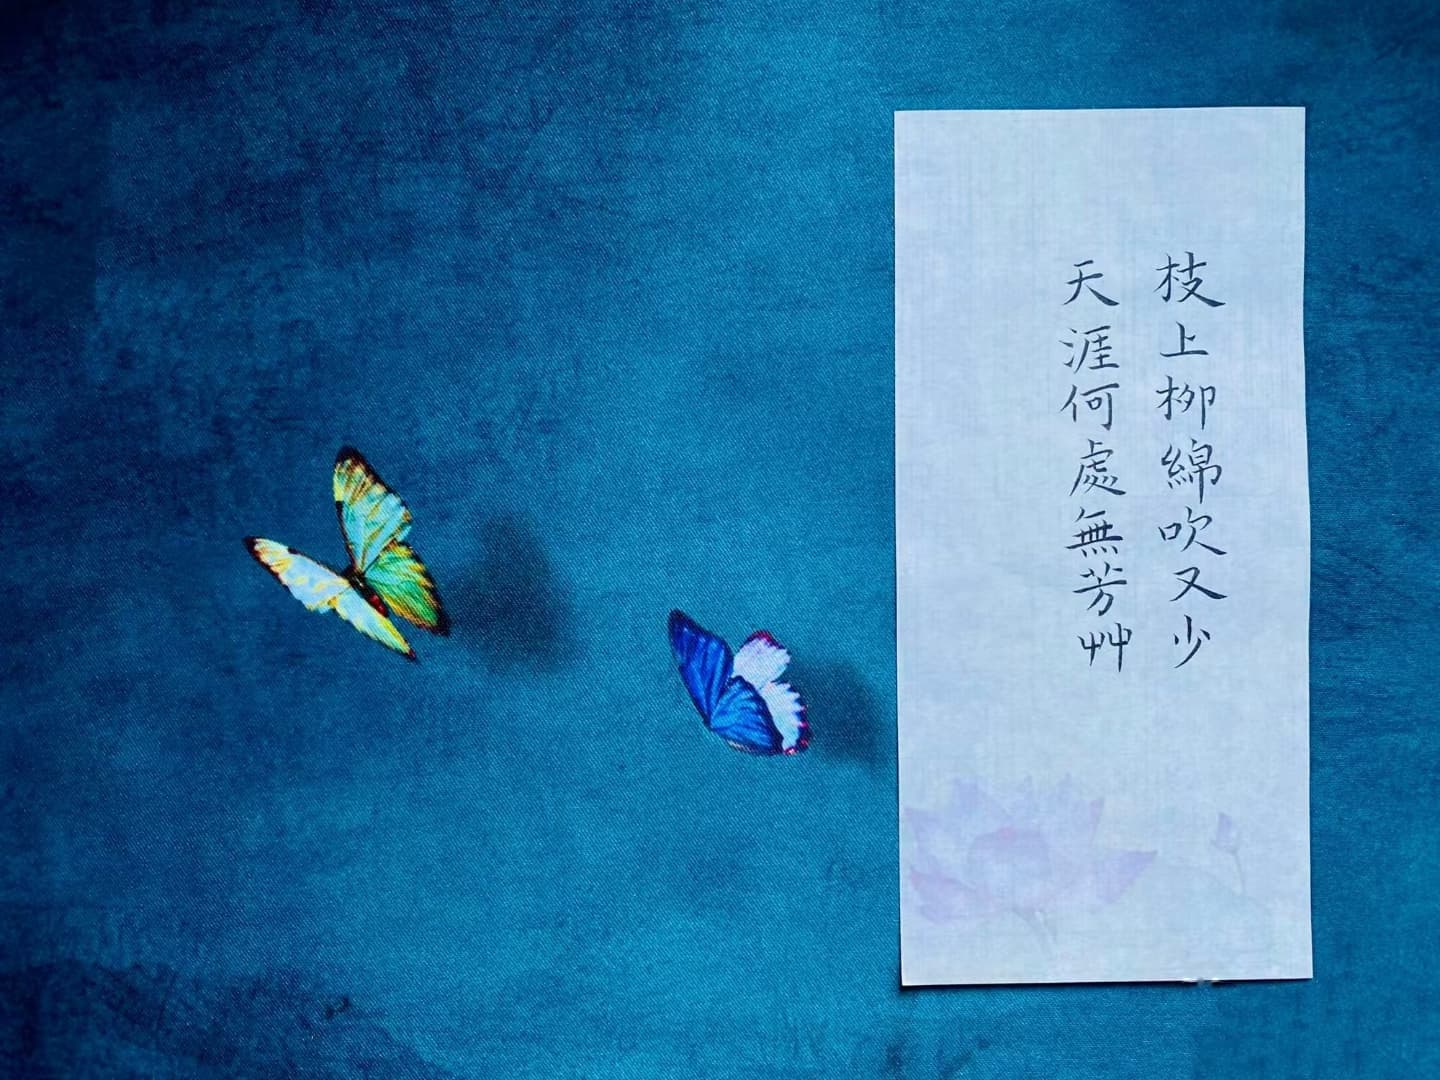 枝上柳綿吹又少
天涯何處無芳艸